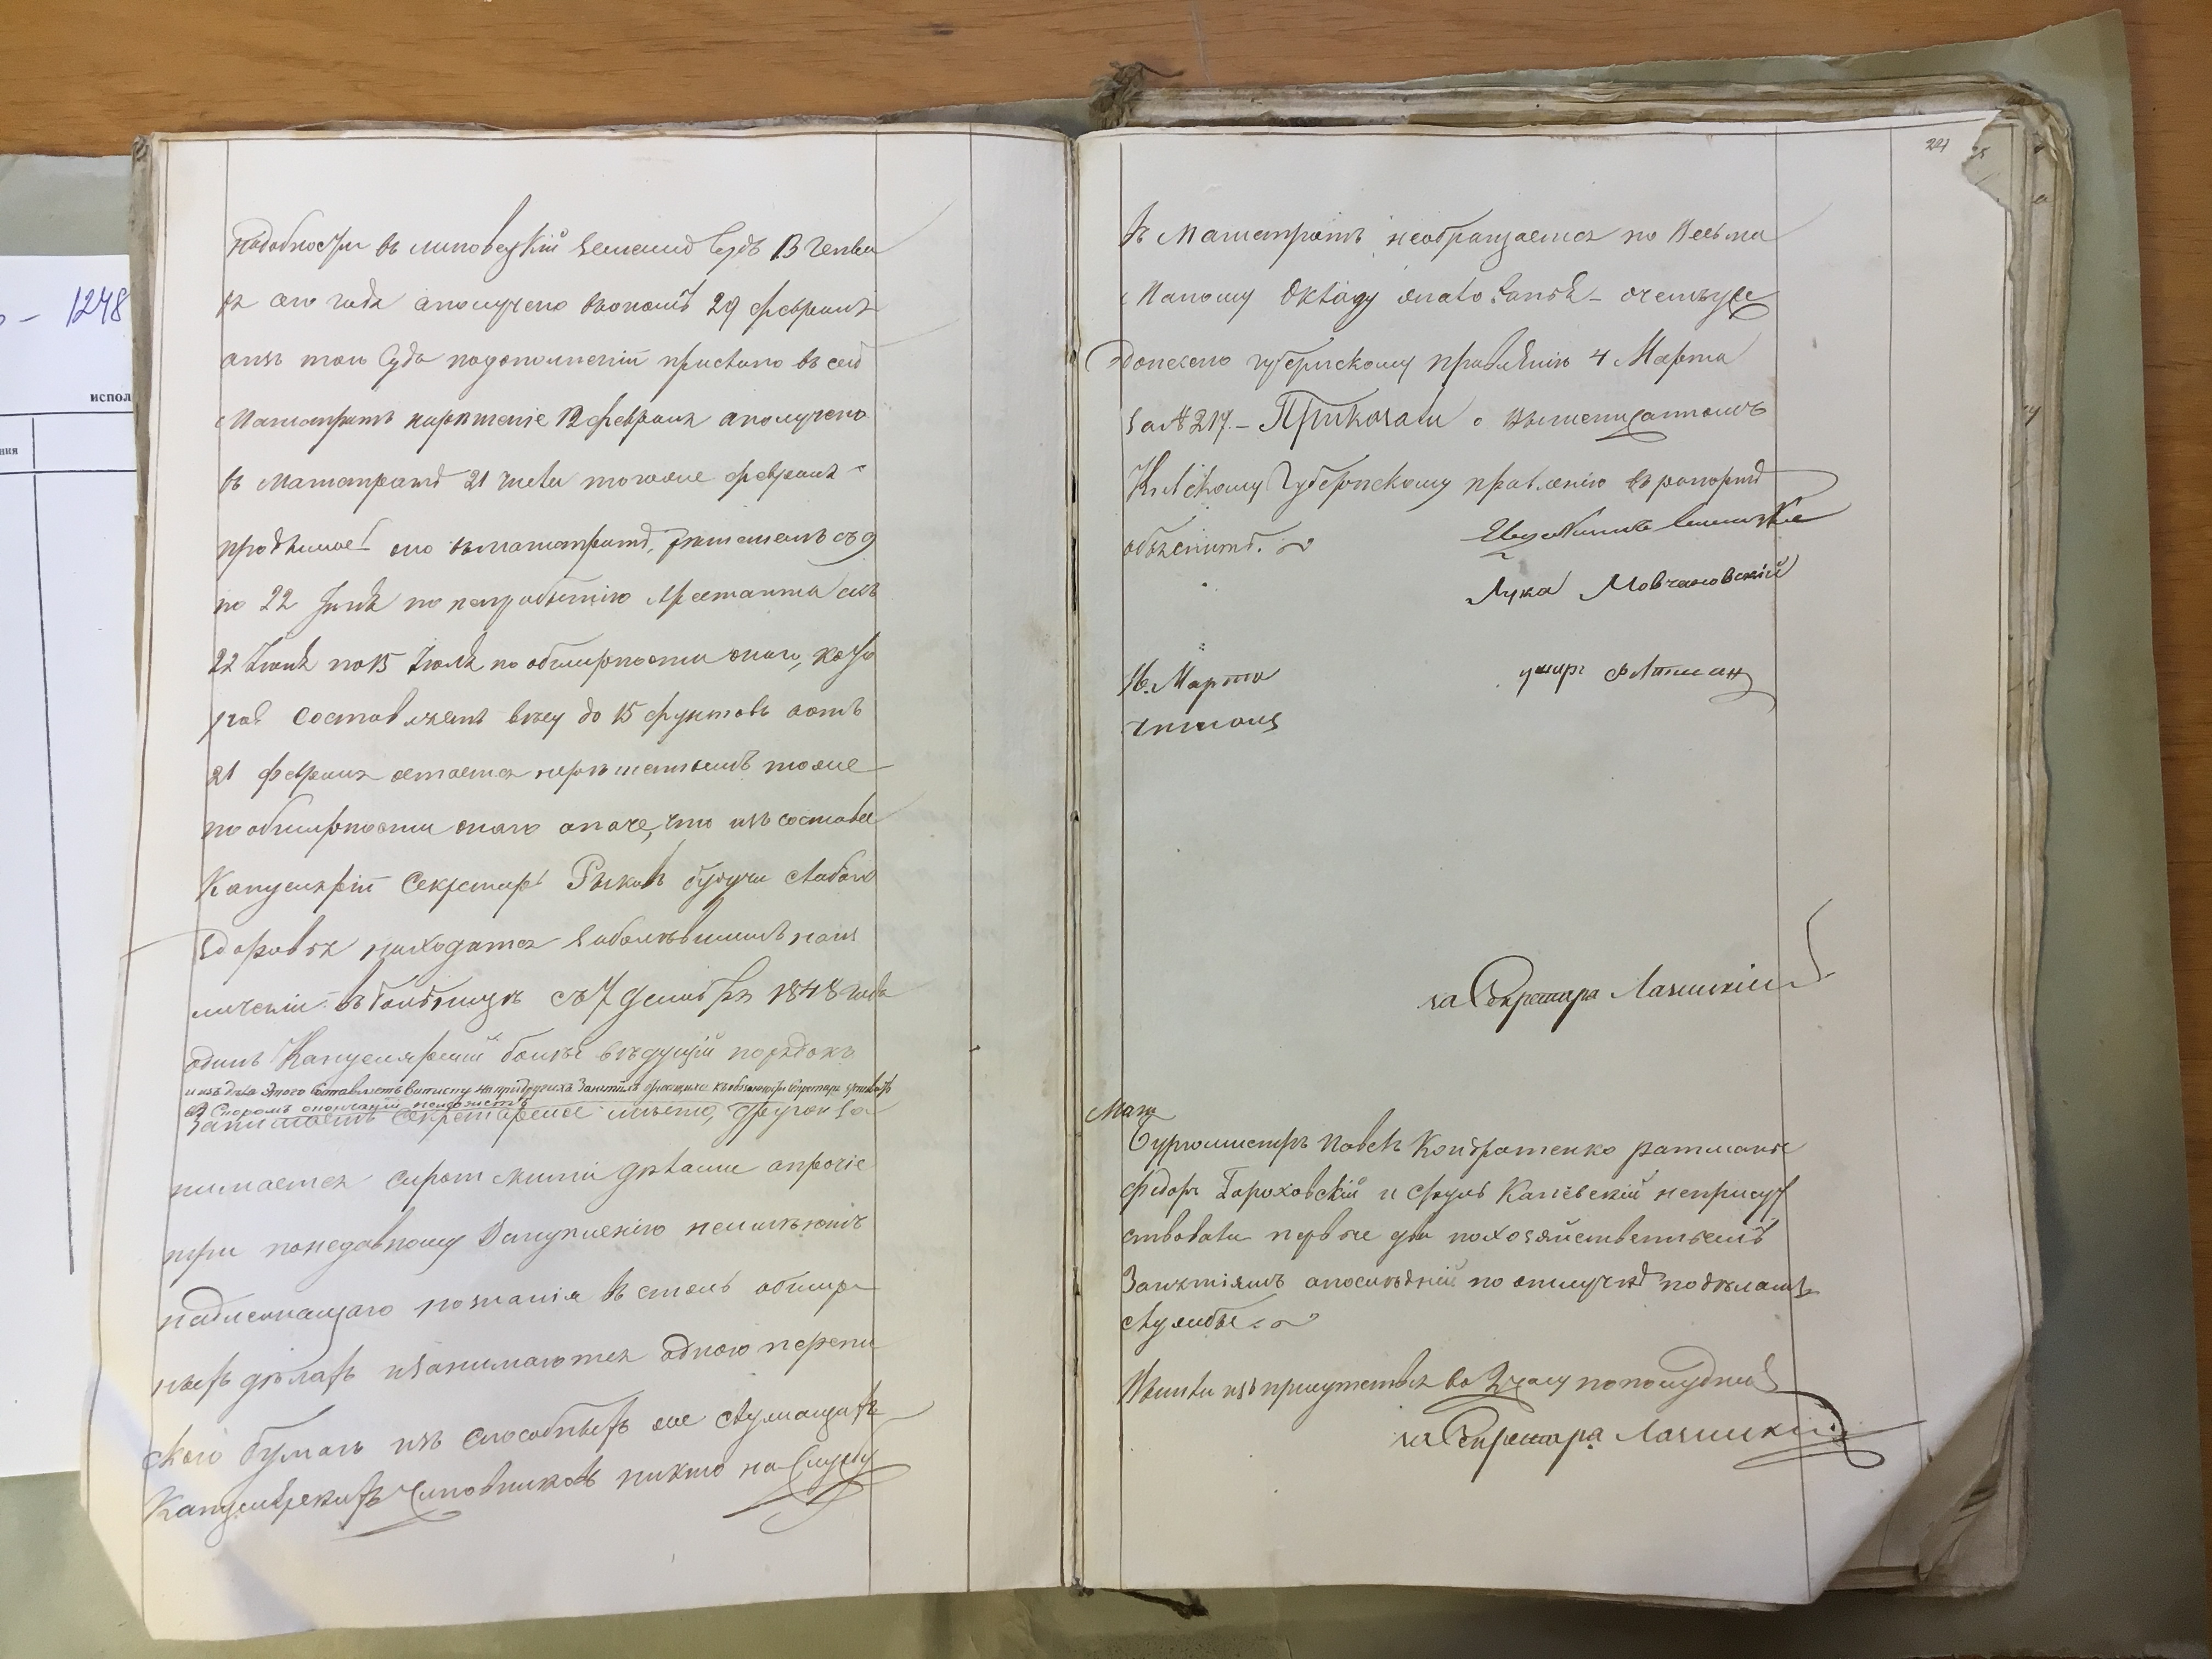 – 1248
испол
ния
надобности въ Липовецкій Земскій Судъ 13 Генва
ря сего года а получено въ ономъ 29 февраля
а изъ того Суда по дополненіи прислано въ сей
Магистратъ нарѣшеніе 12 февраля а получено
въ Магистратѣ 21 числа того же февраля
въ Магистратѣ, рѣшеніемъ съ 9
по 22 Іюня по неприбытію Арестанта а съ
22 Іюня по 15 Іюля по обширности онаго, кото
рое составляетъ вѣсу до 15 фунтовъ а отъ
21 февраля остается нерѣшеннымъ тоже
по обширности онаго а паче, что изъ состава
Канцеляріи Секретарь Рыковъ будучи слабаго
здоровья находится заболѣвшимъ на из
лѣченіи въ больницѣ съ 7 Декабря 1848 года
одинъ Канцелярскій болѣе вѣдущій порядокъ
и изъ дѣла этого составляетъ выписку но при другихъ занятіяхъ относящихся къ обязанности Секретаря
скоромъ окончаніи неможетъ
занимаетъ Секретарское мѣсто, другой за
нимается сиротскими дѣлами а прочіе
три по недавному вступленію неимѣютъ
надлежащаго познанія въ столь обшир
ныхъ дѣлахъ и занимаются одною перепи
ской бумагъ изъ способныхъ же служащихъ
Канцелярскихъ Чиновниковъ никто на службу
227
въ Магистратъ необращается по весьма
малому окладу жалованья – о чемъ уже
донесено Губернскому правленію 4 Марта
за № 217. – Приказали о вышеписанномъ
Кіевскому Губернскому правленію въ рапортѣ
объяснить.
Лука Мовчановскій
16. Марта
за Секретара Лазинскій
Бургомистръ Павелъ Кондратенко ратманы
Федоръ Гороховскій и Францъ Каневскій неприсут
ствовали первые два по хозяйственнымъ
Занятіямъ а послѣдній по отлучкѣ по дѣламъ
службы.
Вышли изъ присутствія во 2 часу по полудни
за Секретара Лазинскій